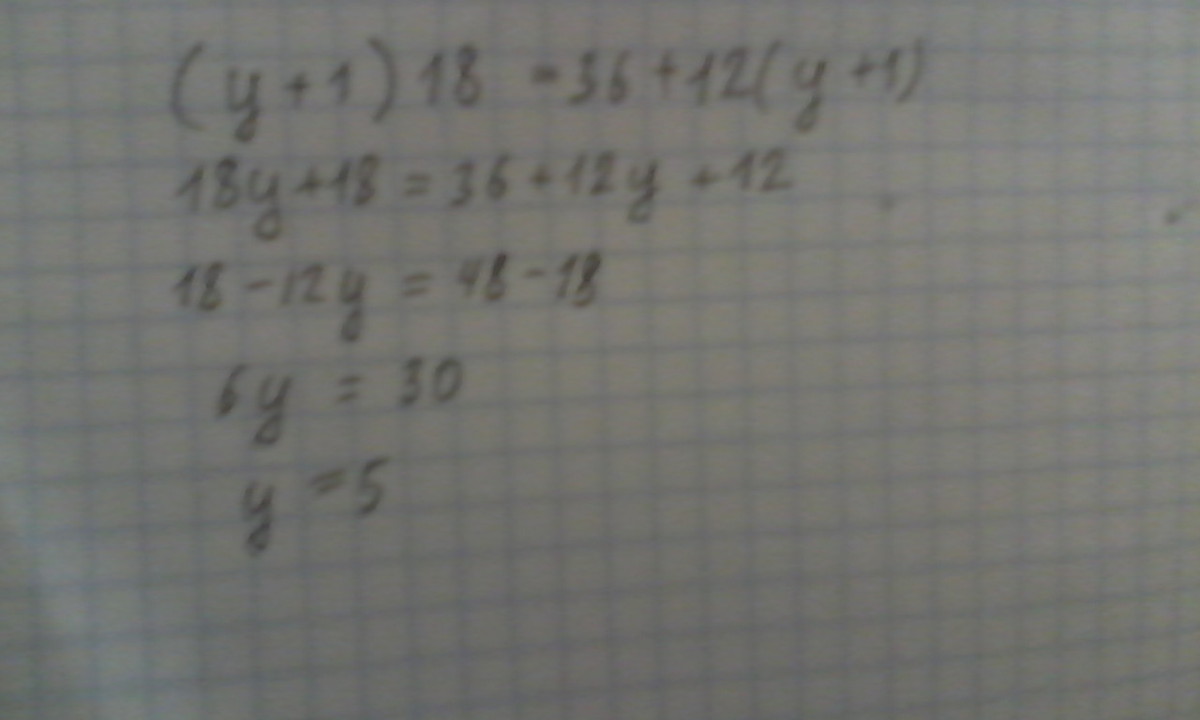 (y+1)18 = 36+12(y+1)
18y+18 = 36+12y+12
18-12y = 48-18
6y = 30
y = 5